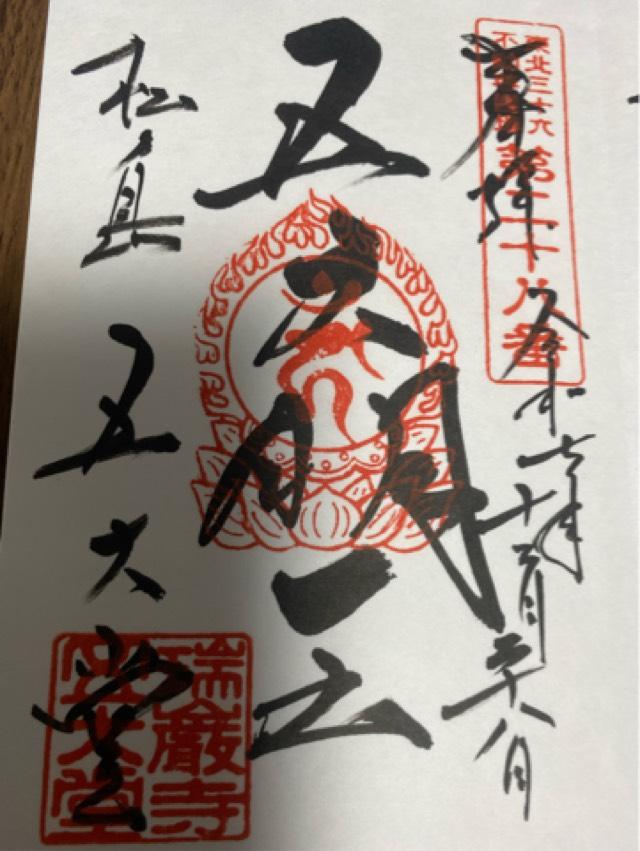 東北三十六
不動尊霊場
第二十八番
奉拝
令和七年十二月二十八日
五大明王
松島
五大堂
瑞巖寺
五大堂